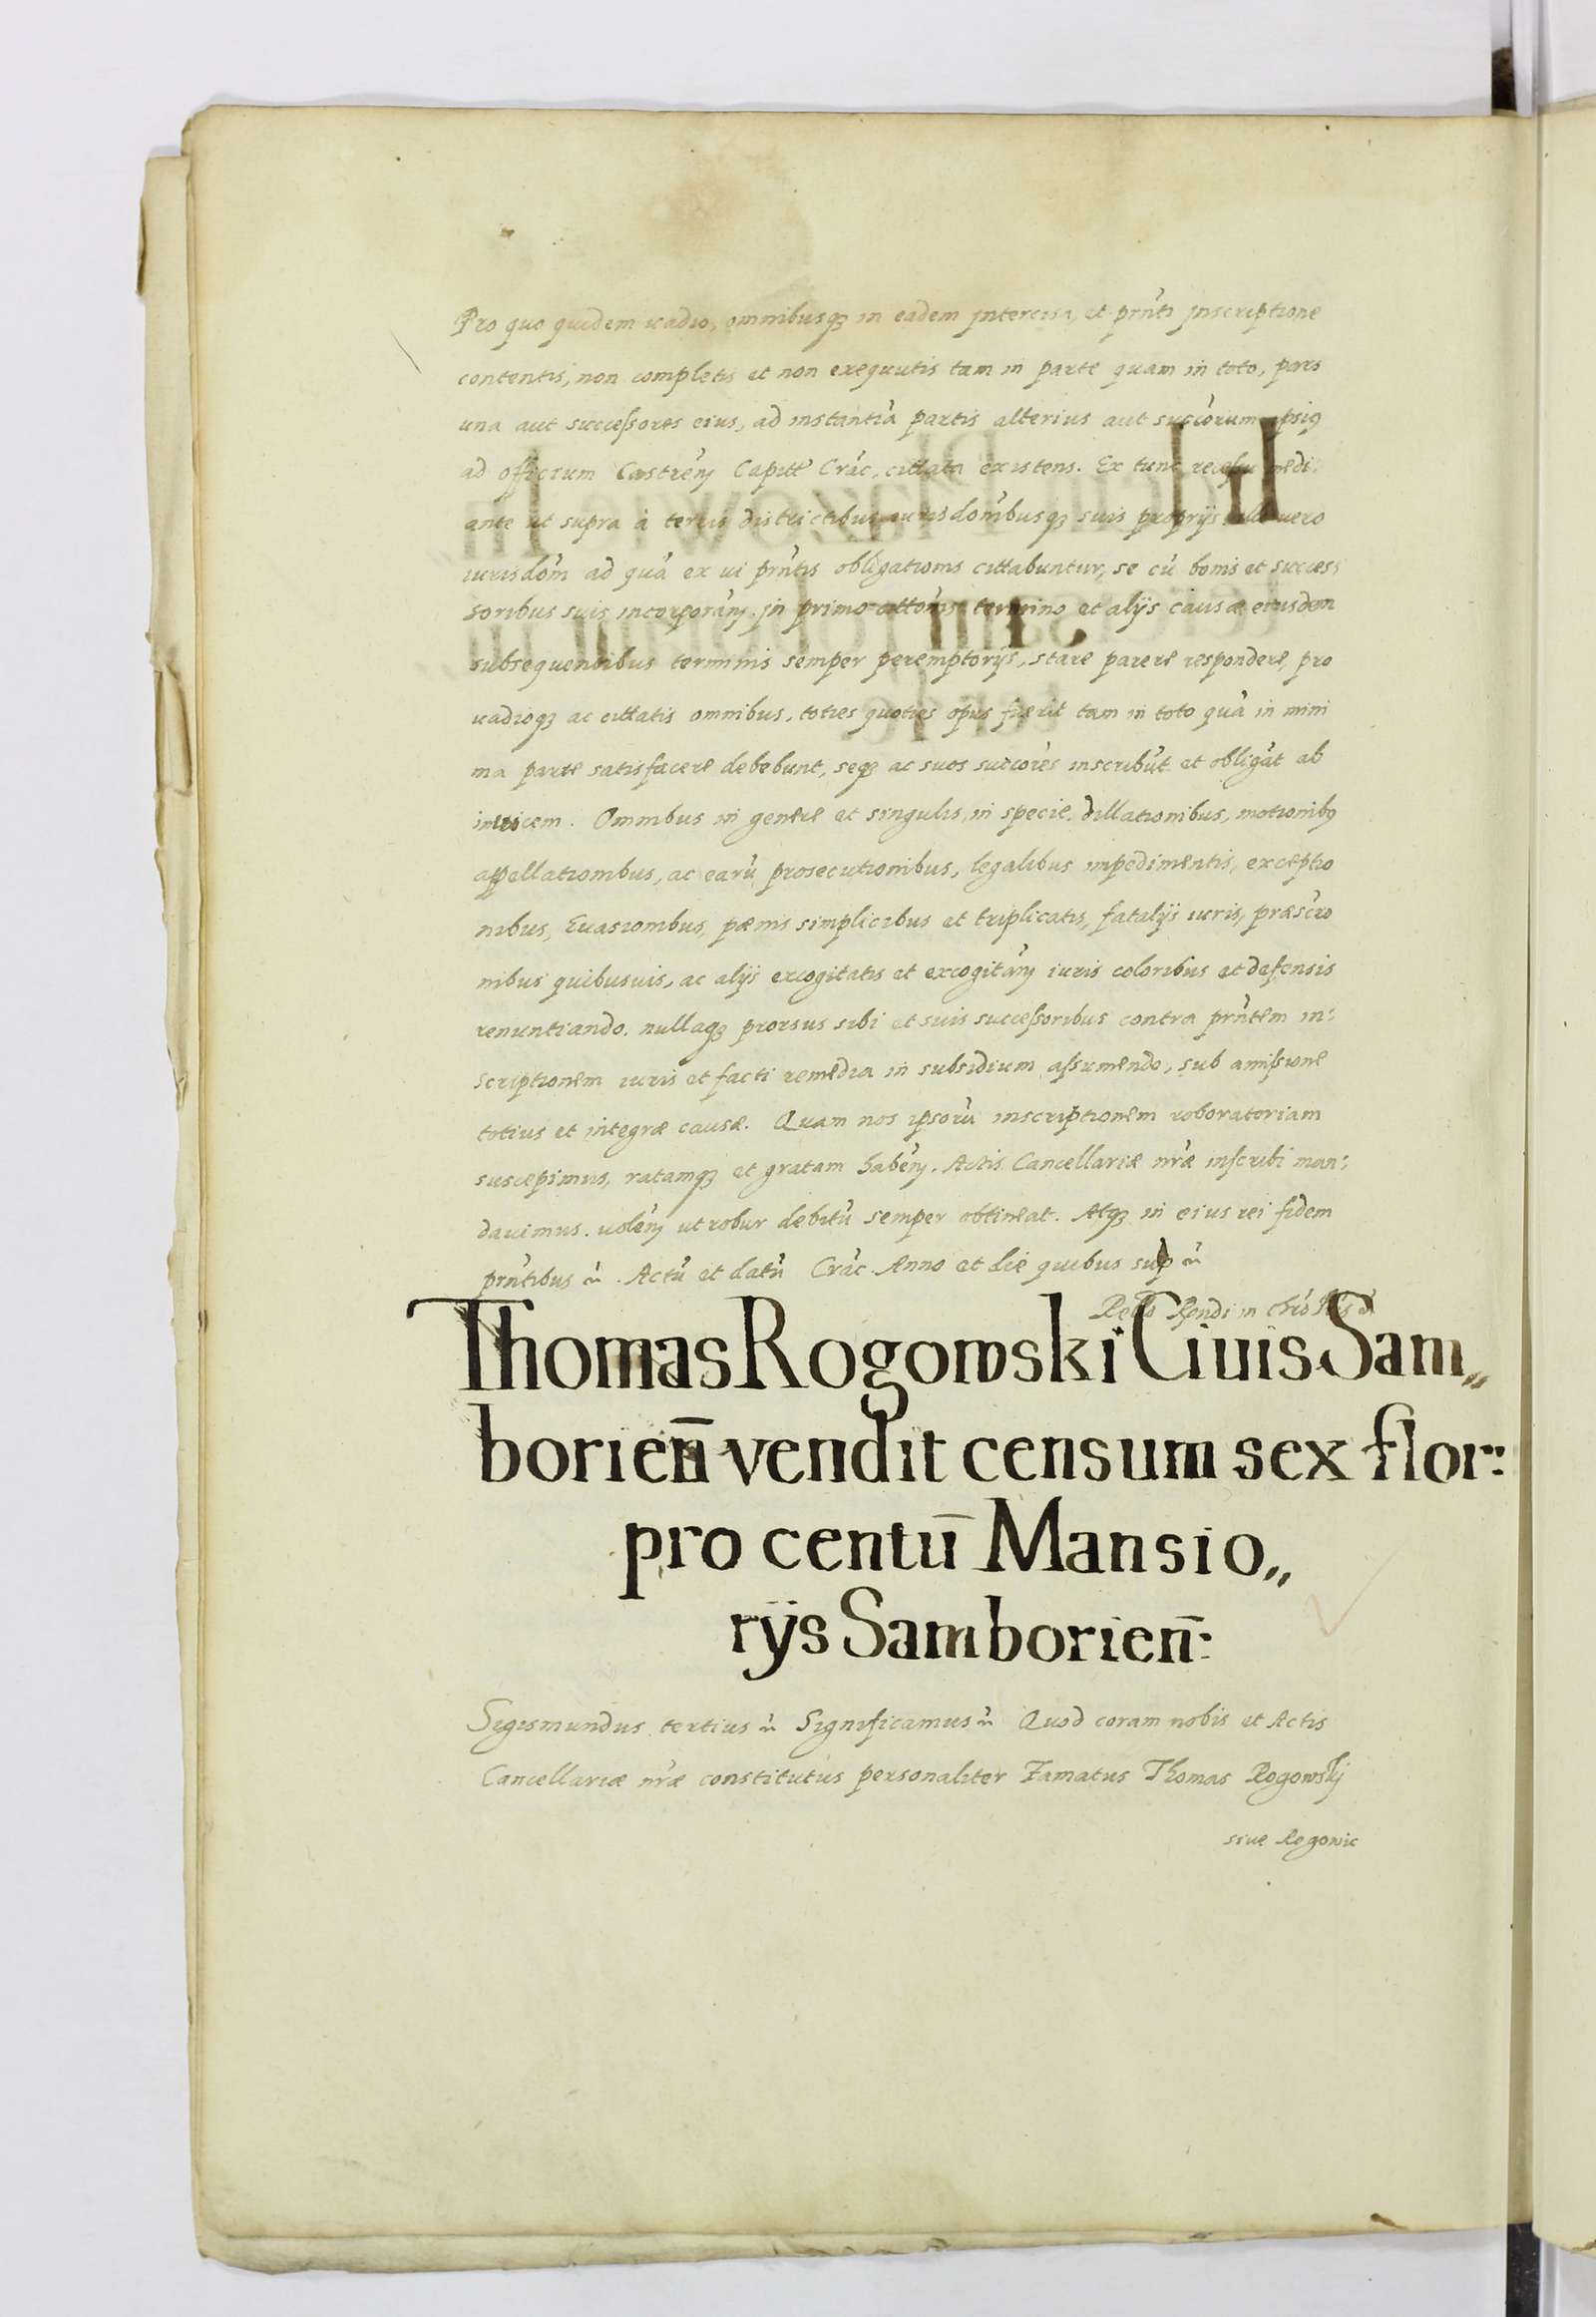 Pro quo quidem vadio, omnibusq₃ in eadem jntercisa, et prn̄ti jnscriptione
contentis, non completis et non exequutis tam in parte quam in toto, pars
una aut successores eius, ad instantiā partis alterius aut succorum
ad officium Castren̄ Capitt Crac, cittata existens. Ex tunc
ante ut supra à terris districtibus iurisdonibusq₃ suis proprijs vero
iurisdom ad quā ex ui prn̄tis obligationis cittabuntur, se cū bonis et succes
soribus suis incorporan̄ jn primo termino et alijs causæ eiusdem
subsequentibus terminis semper peremptorijs, stare parere respondere, pro
vadioq₃ ac cittatis omnibus, toties quoties opus fuerit tam in toto quā in mini
ma parte satisfacere debebunt, seq₃ ac suos succores inscribūt et obligāt ab
invicem. Omnibus in genere et singulis in specie. dillationibus, motionibꝰ
appellationibus, ac earū prosecutionibus, legalibus impedimentis, exceptio
nibus, Evasionibus, pænis simplicibus et triplicatis, fatalijs iuris, præscrō
nibus quibusuis, ac alijs excogitatis et excogitan̄ iuris coloribus et defensis
renuntiando. nullaq₃ prorsus sibi et suis successoribus contra prn̄tem in:
scriptionem iuris et facti remedia in subsidium assumendo, sub amissione
totius et integræ causæ. Quam nos ipsorū inscriptionem roboratoriam
suscepimus, ratamq₃ et gratam haben̄. Actis Cancellariæ nr̄æ inscribi man:
davimus. volen̄ ut robur debitū semper obtineat. Atq₃ in eius rei fidem
prn̄tibus ~. Actū et datū Crac Anno et die quibus sup ~
Relō Rendi in Chrō
Thomas Rogowski Ciuis Sam„
borien̄ vendit censum sex flor:
pro centū Mansio„
rijs Samborien̄:
Sigismundus tertius ~ Significamus ~ Quod coram nobis et Actis
Cancellariæ nr̄æ constitutus personaliter Famatus Thomas Rogowskj
sive Rogowic